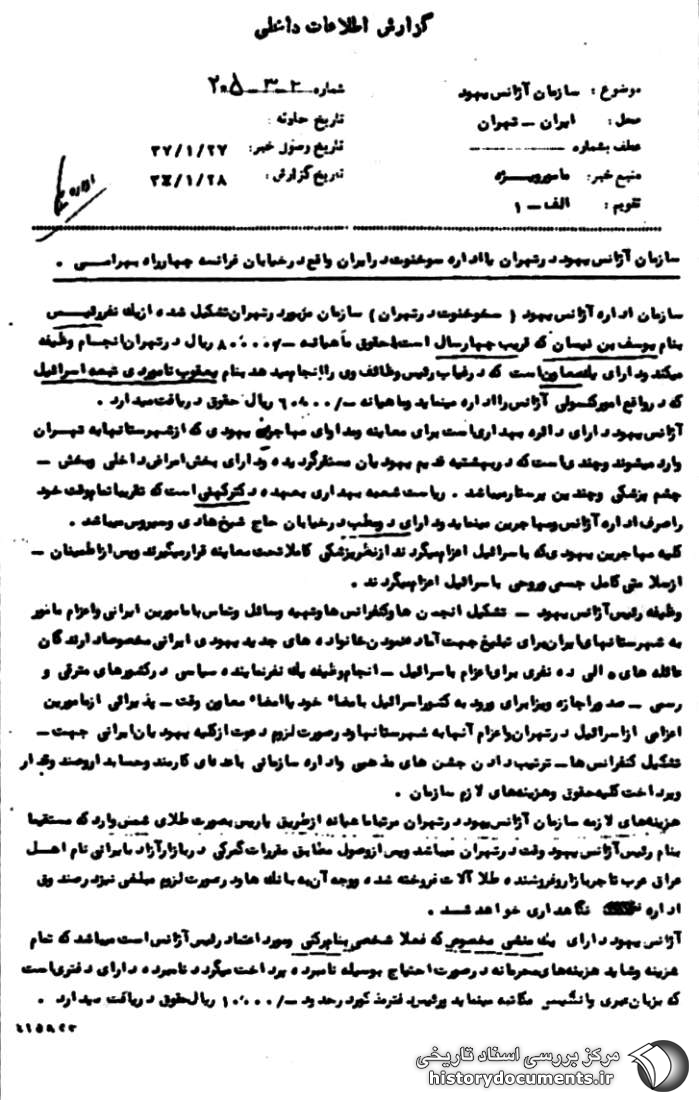 گزارش اطلاعات داخلی
موضوع : سازمان آژانس یهود
شماره
محل : ایران ـ تهران
تاریخ حادثه :
عطف بشماره
تاریخ وصول خبر: ۳۷/۱/۲۷
منبع خبر: مامور ویژه
تاریخ گزارش :
تقویم : الف ـ ۱
سازمان آژانس یهود در تهران یا اداره سوخنوت در ایران واقع در خیابان فرانسه چهارراه .
سازمان اداره آژانس یهود ( سخوخنوت در تهران ) سازمان مزبور در تهران تشکیل شده از یک نفر رئیس
بنام یوسف بن نیسان که قریب چهار سال است با حقوق ماهیانه ریال در تهران انجام وظیفه
میکند و دارای یک معاون است که در غیاب رئیس وظائف وی را انجام میدهد بنام یعقوب تبعه اسرائیل
که در واقع امور کنسولی آژانس را اداره مینماید و ماهیانه ریال حقوق دریافت میدارد .
آژانس یهود دارای دائره بهداری است برای معاینه و مداوای مهاجرین یهودی که از شهرستانها به تهران
وارد میشوند و چندی است که در بهشتیه قدیم یهودیان مستقر گردیده و دارای بخش امراض داخلی و بخش ـ
چشم پزشکی و چندین پرستار میباشد . ریاست شعبه بهداری بعهده دکتر است که تقریبا تمام وقت خود
را صرف اداره آژانس و مهاجرین مینماید و دارای دو مطب در خیابان حاج شیخ هادی و سیروس میباشد .
کلیه مهاجرین یهودی که با سرائیل اعزام میگردند از نظر پزشکی کاملا تحت معاینه قرار میگیرند و پس از اطمینان ـ
از سلامتی کامل جسمی و روحی با سرائیل اعزام میگردند .
وظیفه رئیس آژانس یهود ـ تشکیل انجمن ها و کنفرانس ها و تهیه وسائل و تماس با مامورین ایرانی و اعزام مامور
به شهرستانهای ایران برای تبلیغ جهت آماده نمودن خانواده های جدید یهودی ایرانی مخصوصا دارندگان
عائله های ۵ الی ده نفری برای اعزام با سرائیل ـ انجام وظیفه یک نفر نماینده سیاسی در کشورهای مترقی و
رسمی ـ صدور اجازه ویزا برای ورود به کشور اسرائیل بامضاء خود یا امضاء معاون وقت ـ پذیرائی از مامورین
اعزامی از اسرائیل در تهران و اعزام آنها به شهرستانها و در صورت لزوم دعوت از کلیه یهودیان ایرانی جهت ـ
تشکیل کنفرانس ها ـ ترتیب دادن جشن های مذهبی و اداره سازمانی با عده ای کارمند و حسابدار و صندوقدار
و پرداخت کلیه حقوق و هزینه های لازم سازمان .
هزینه های لازمه سازمان آژانس یهود در تهران مرتبا ماهیانه از طریق پاریس بصورت طلای شمش وارد که مستقیما
بنام رئیس آژانس یهود وقت در تهران میباشد و پس از وصول مطابق مقررات گمرکی در بازار آزاد با یرانی نام اهل
عراق عرب تاجر بازار و فروشنده طلا آلات فروخته شده و وجه آن به بانک ها و در صورت لزوم مبلغی نیز در صندوق
اداره نگاهداری خواهد شد .
آژانس یهود دارای یک منشی مخصوص که فعلا شخصی بنام برکی و مورد اعتماد رئیس آژانس است میباشد که تمام
هزینه و شاید هزینه های محرمانه در صورت احتیاج بوسیله نامبرده پرداخت میگردد نامبرده دارای دفتری است
که بزبان عبری و انگلیسی مکاتبه مینماید در حدود ـ/۱۰۰۰۰ ریال حقوق دریافت میدارد .
مرکز بررسی اسناد تاریخی
historydocuments.ir